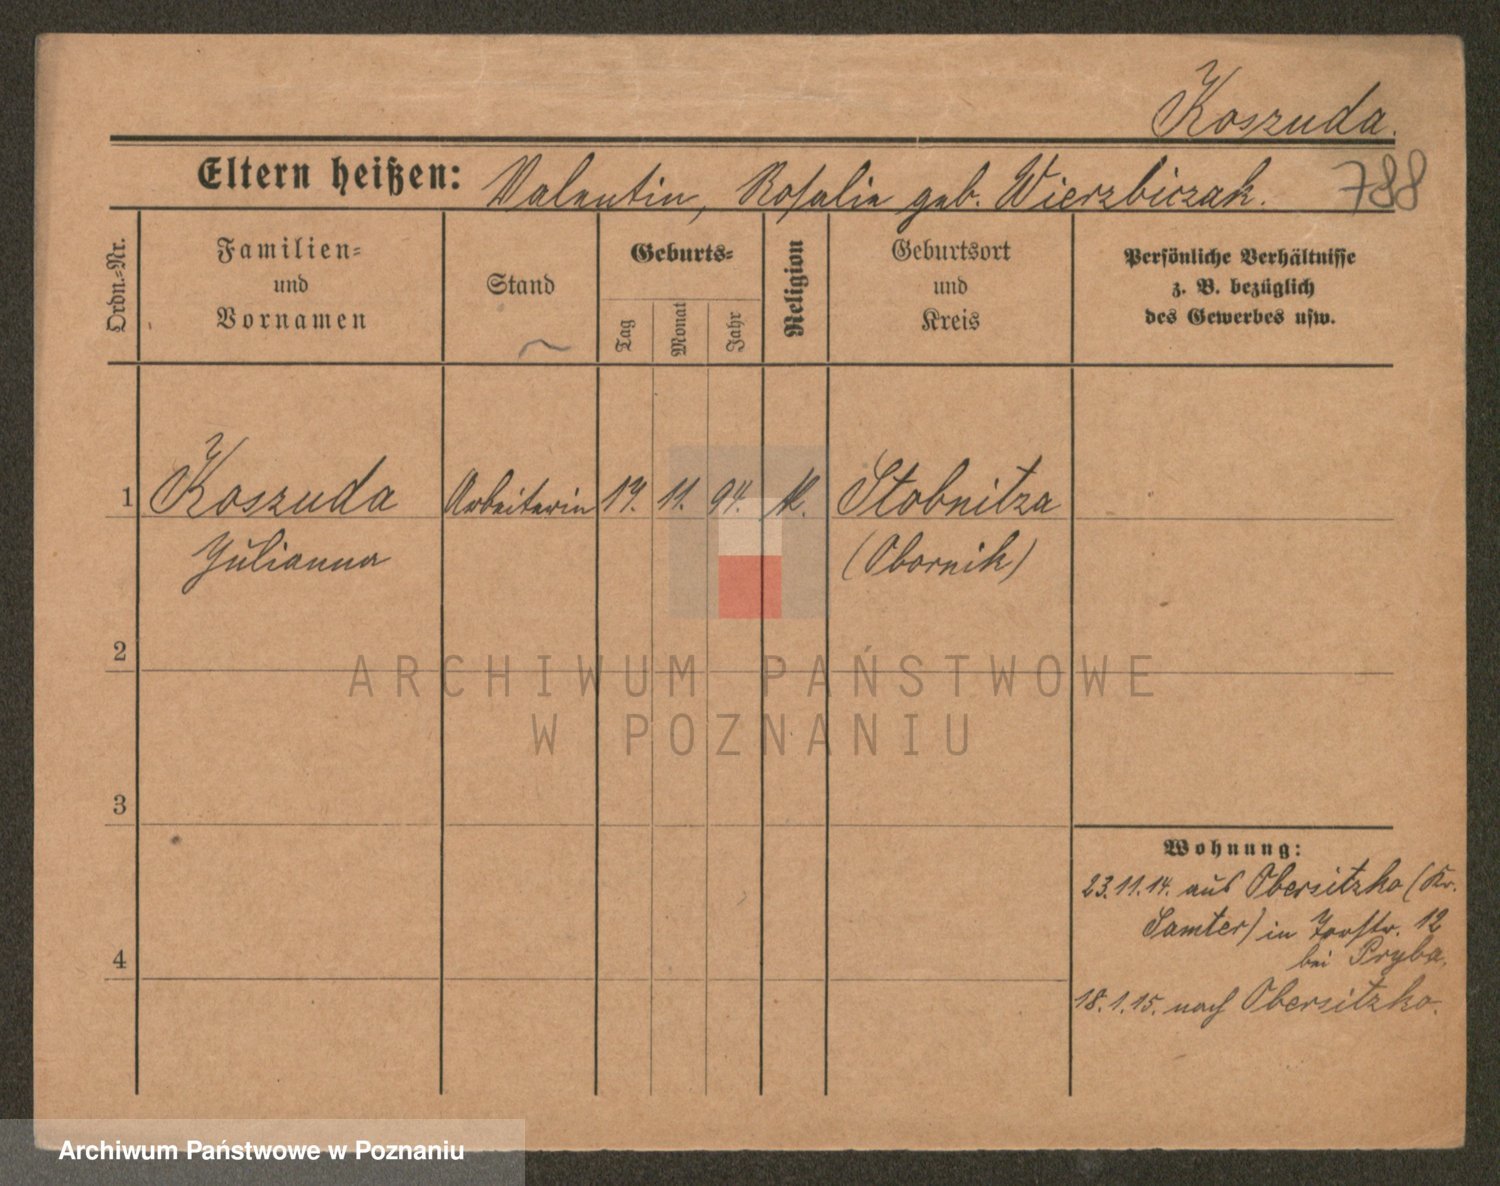 Koszuda.
Eltern heißen: Valentin, Rosalie geb. Wierzbiczak.
788
Ordn.-Nr.
Familien-
und
Vornamen
Stand
Geburts-
Tag
Monat
Jahr
Religion
Geburtsort
und
Kreis
Persönliche Verhältnisse
z. B. bezüglich
des Gewerbes usw.
1 Koszuda Arbeiterin 11. 94. k. Stobnitza
Julianna (Obornik)
2
3
4
Wohnung:
23.11.14. aus Obersitzko (Kr.
Samter) in 12
bei Pryba.
18.1.15. nach Obersitzko.
ARCHIWUM PAŃSTWOWE
W POZNANIU
Archiwum Państwowe w Poznaniu